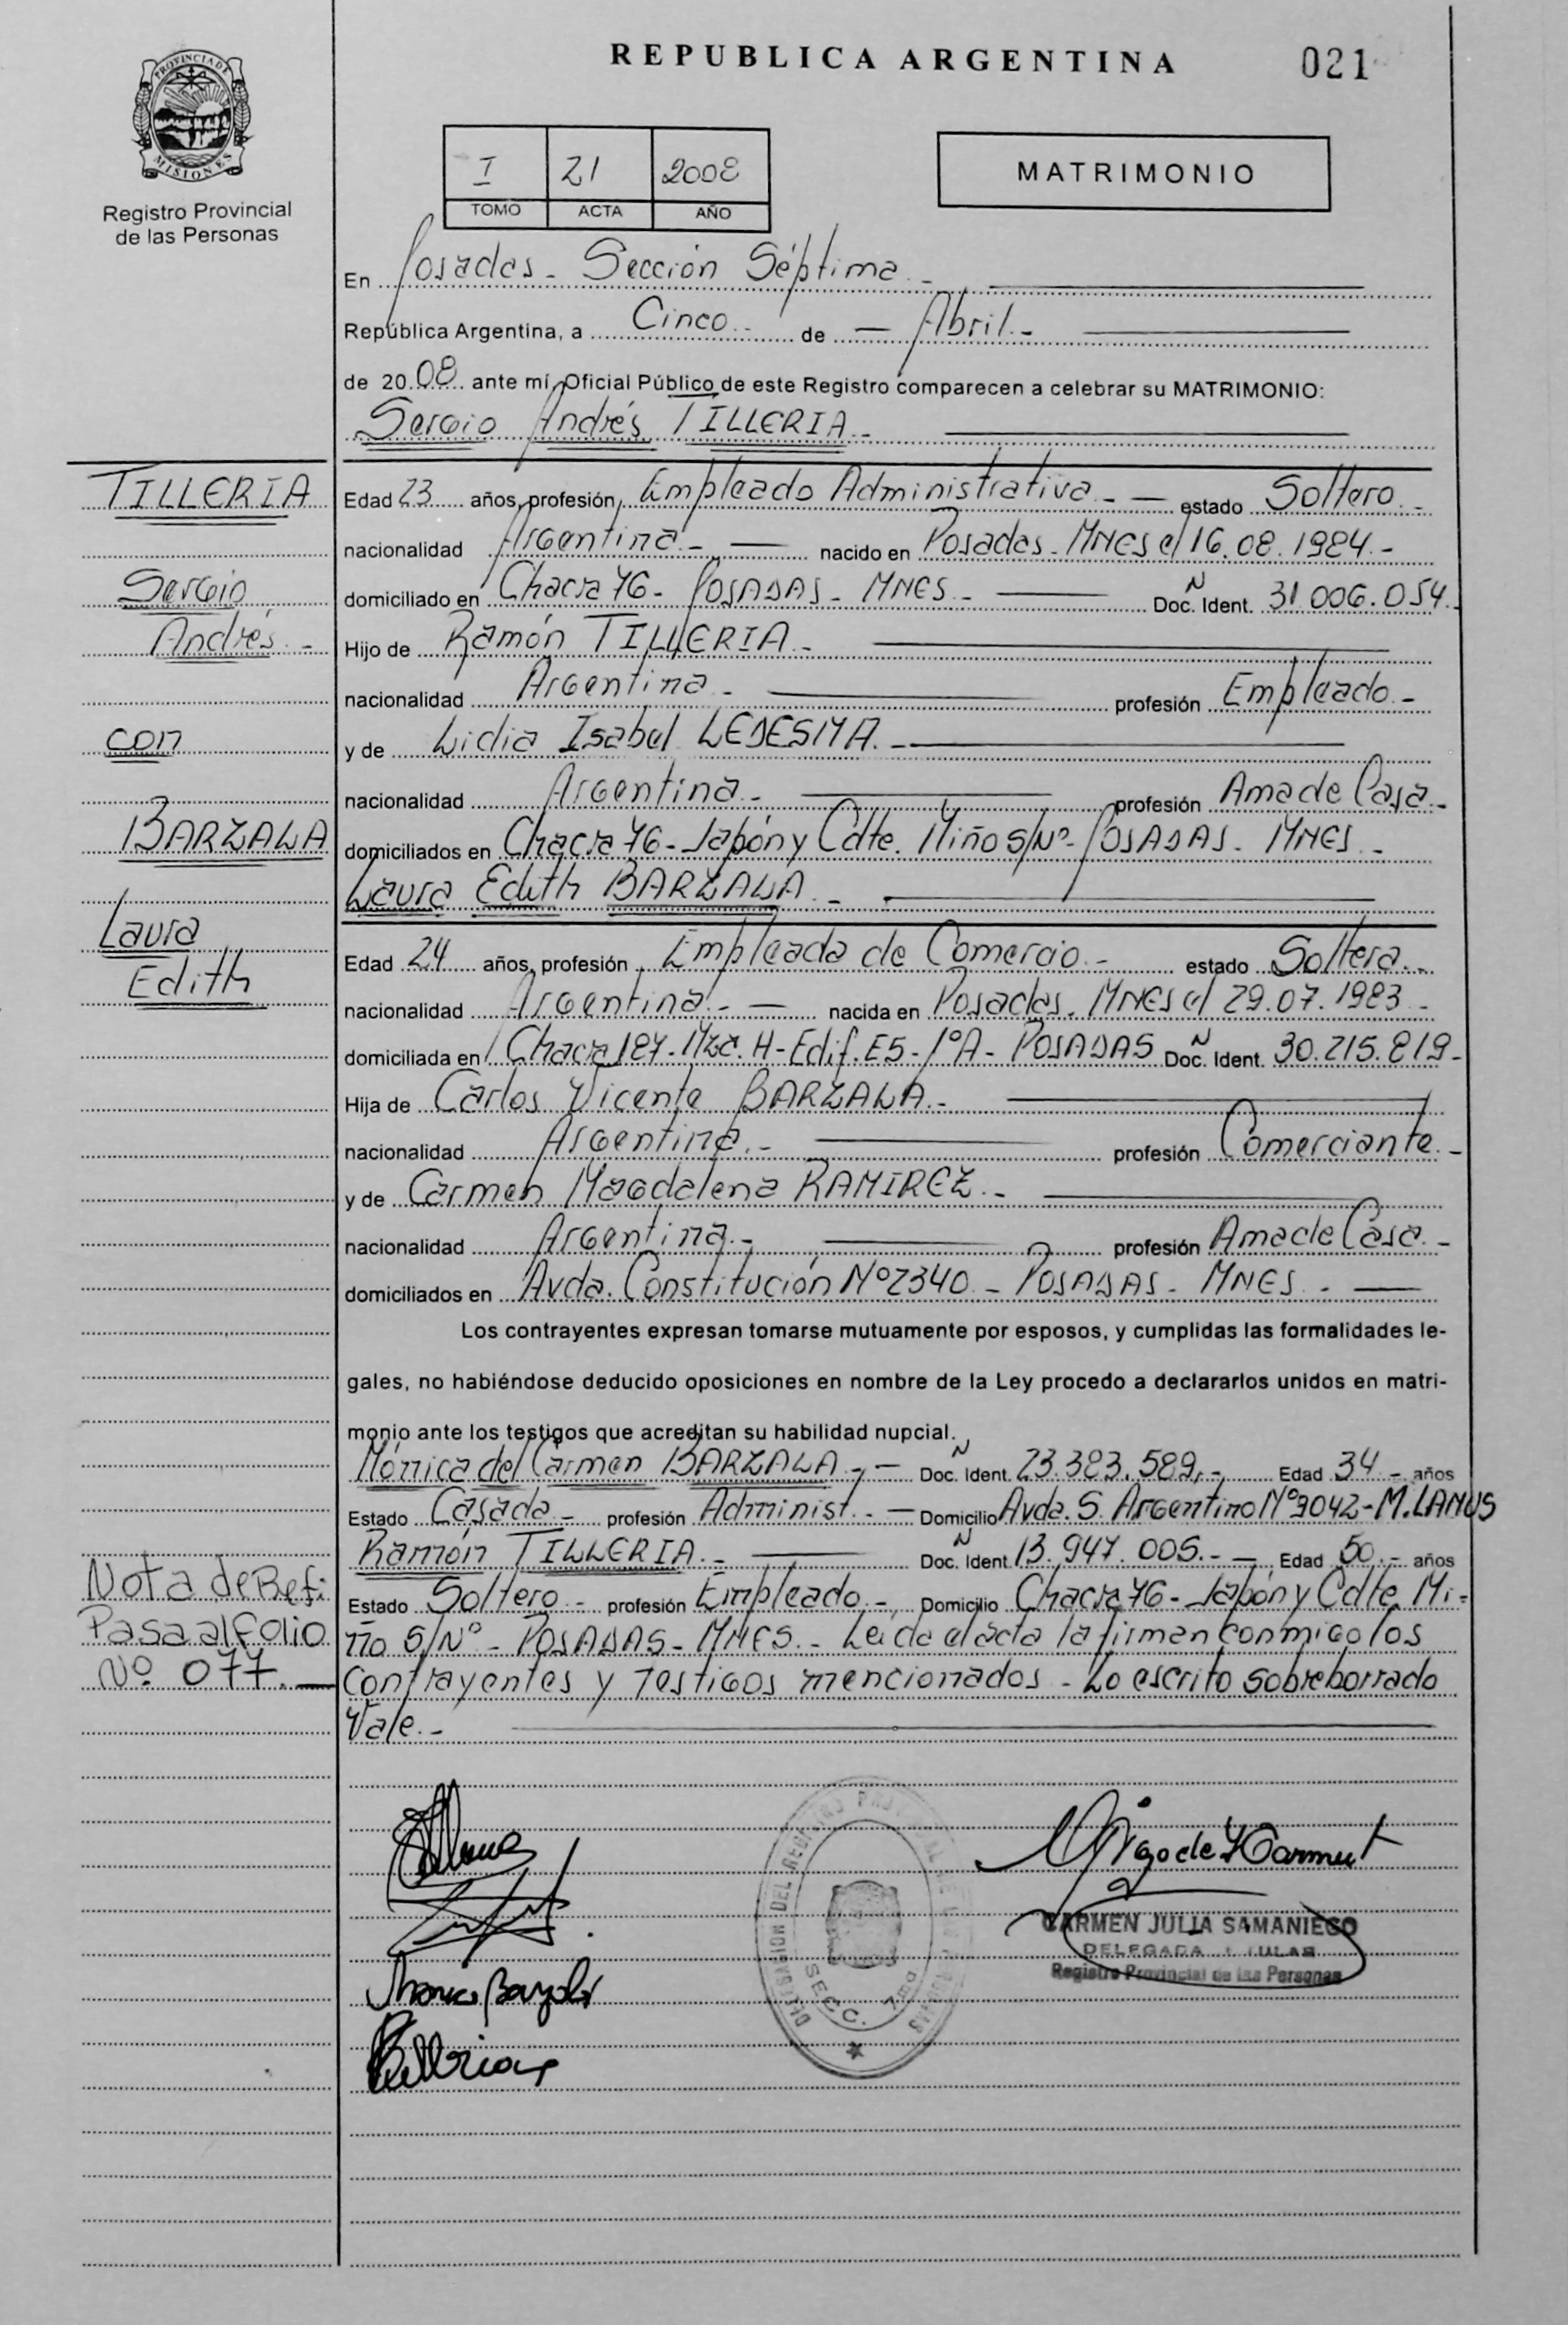 REPUBLICA ARGENTINA
021
PROVINCIA DE
MISIONES
Registro Provincial
de las Personas
I 21 2008
TOMO ACTA AÑO
MATRIMONIO
En Posadas - Sección Séptima.-
República Argentina, a Cinco.- de - Abril.-
de 2008 ante mí, Oficial Público de este Registro comparecen a celebrar su MATRIMONIO:
Sergio Andrés TILLERIA.-
TILLERIA
Sergio
Andrés.-
con
BARZALA
Laura
Edith
Edad 23 años, profesión, Empleado Administrativa.- — estado Soltero.-
nacionalidad Argentina.- — nacido en Posadas. MNES el 16.08.1984.-
domiciliado en Chacra 76- POSADAS- MNES.- — Doc. N Ident. 31.006.054.
Hijo de Ramón TILLERIA.-
nacionalidad Argentina.- profesión Empleado.-
y de Lidia Isabel LEDESMA.-
nacionalidad Argentina.- profesión Ama de Casa.-
domiciliados en Chacra 76- Japón y Cdte. Miño S/Nº- POSADAS- MNES.-
Laura Edith BARZALA.-
Edad 24 años, profesión Empleada de Comercio.- estado Soltera.-
nacionalidad Argentina.- — nacida en Posadas. MNES el 29.07.1983.-
domiciliada en Chacra 187-Mzc. H-Edif. E5-1ºA- POSADAS Doc. N Ident. 30.215.819-
Hija de Carlos Vicente BARZALA.-
nacionalidad Argentina.- profesión Comerciante.-
y de Carmen Magdalena RAMIREZ.-
nacionalidad Argentina.- profesión Ama de Casa.-
domiciliados en Avda. Constitución Nº2340.- POSADAS- MNES.-
Los contrayentes expresan tomarse mutuamente por esposos, y cumplidas las formalidades le-
gales, no habiéndose deducido oposiciones en nombre de la Ley procedo a declararlos unidos en matri-
monio ante los testigos que acreditan su habilidad nupcial.
Mónica del Carmen BARZALA.- — Doc. N Ident. 23.383.589.- Edad 34.- años
Estado Casada.- profesión Administ.- — Domicilio Avda. S. Argentino Nº9042-M.LANUS
Ramón TILLERIA.- — Doc. N Ident. 13.947.005.- — Edad 50.- años
Estado Soltero.- profesión Empleado.- Domicilio Chacra 76- Japón y Cdte. Mi-
ño S/Nº- POSADAS- MNES.- Leida el acta la firman conmigo los
contrayentes y testigos mencionados - Lo escrito sobreborrado
Vale.-
Nota de Ref:
Pasa al Folio
Nº 077.-
DELEGACION DEL REGISTRO PROVINCIAL DE LAS PERSONAS
SECC. 7ma
CARMEN JULIA SAMANIEGO
DELEGADA TITULAR
Registro Provincial de las Personas